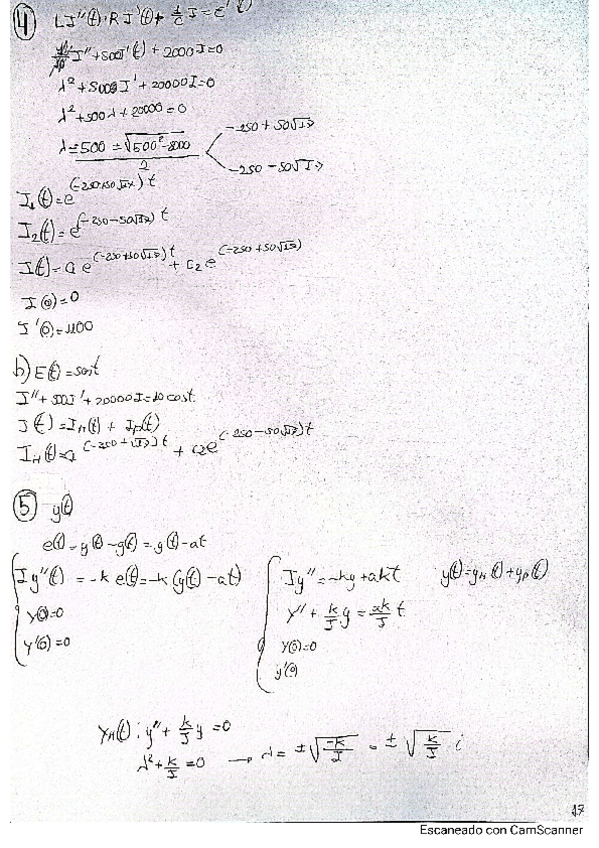 ④ L I''(t) + R I'(t) + 1/C I = E'(t)
I'' + 500 I'(t) + 2000 I = 0
λ² + 500 I' + 20000 I = 0
λ² + 500 λ + 20000 = 0
λ = 500 ± √(500² - 8000) / 2
-250 + 50√17
-250 - 50√17
I₁(t) = e^(-250+50√17)t
I₂(t) = e^(-250-50√17)t
I(t) = c₁ e^(-250+50√17)t + c₂ e^(-250+50√17)
I(0) = 0
I'(0) = 1100
b) E(t) = sen t
I'' + 500 I' + 20000 I = 10 cos t
I(t) = I_H(t) + I_p(t)
I_H(t) = c₁ e^(-250+50√17)t + c₂ e^(-250-50√17)t
⑤ y(t)
e(t) = y(t) - g(t) = y(t) - at
I y''(t) = -k e(t) = -k (y(t) - at)
y(0) = 0
y'(0) = 0
I y'' = -ky + akt
y'' + k/I y = ak/I t
y(0) = 0
y'(0)
y(t) = y_H(t) + y_p(t)
y_H(t) : y'' + k/I y = 0
λ² + k/I = 0 → λ = ± √(-k/I) = ± √(k/I) i
17
Escaneado con CamScanner